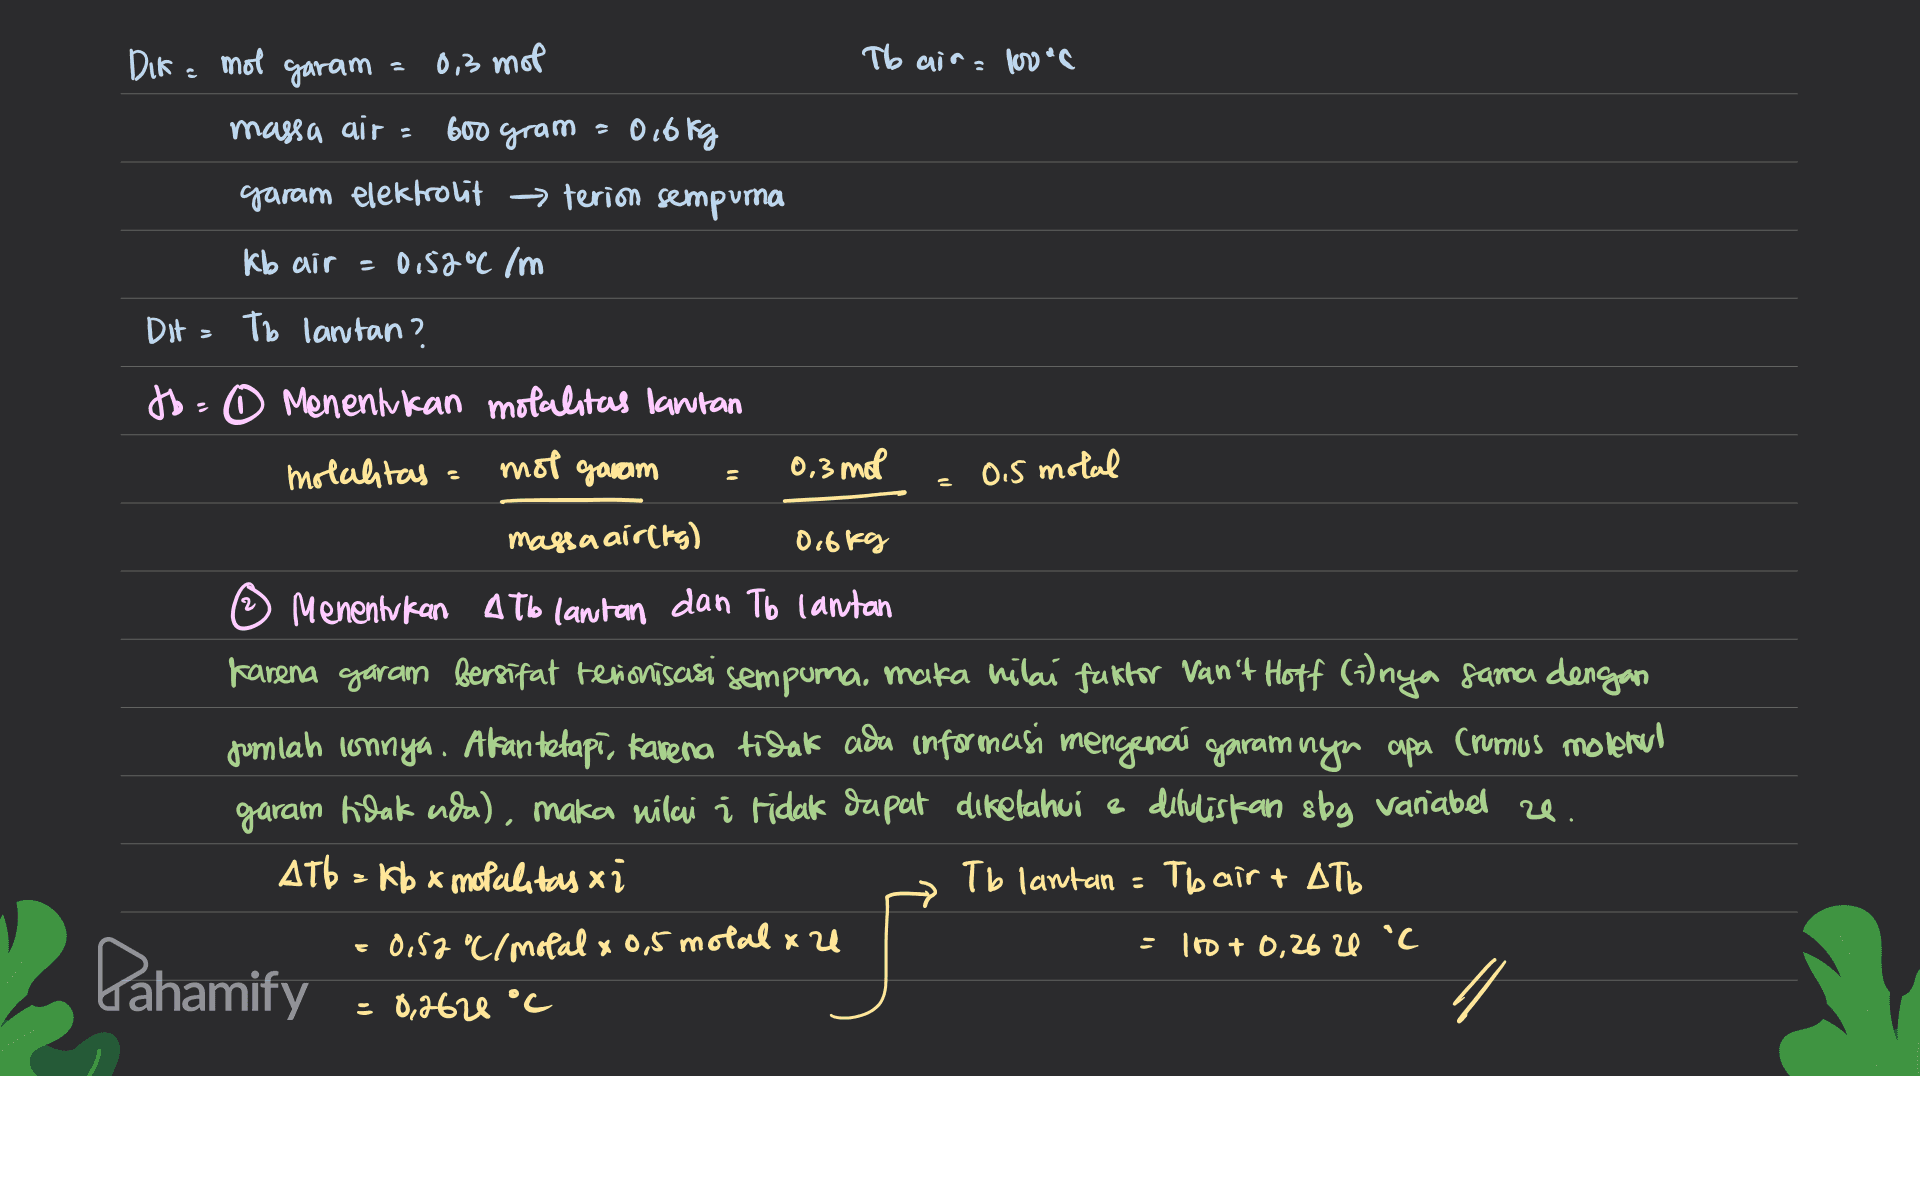 Dik = mol garam = 0,3 mol Tb air = 100°C
massa air = 600 gram = 0,6 kg
garam elektrolit → terion sempurna
Kb air = 0,52°C /m
Dit = Tb larutan?
Jb = ① Menentukan molalitas larutan
molalitas = mol garam = 0,3 mol = 0,5 molal
massa air (kg) 0,6 kg
② Menentukan ΔTb larutan dan Tb larutan
Karena garam bersifat terionisasi sempurna. maka nilai faktor Van't Hoff (i)nya sama dengan
jumlah ionnya. Akan tetapi, karena tidak ada informasi mengenai garamnya apa (rumus molekul
garam tidak ada), maka nilai i tidak dapat diketahui & dituliskan sbg variabel x.
ΔTb = Kb x molalitas x i Tb larutan = Tb air + ΔTb
= 0,52 °C/molal x 0,5 molal x x = 100 + 0,26 x °C
= 0,26 x °C
Pahamify